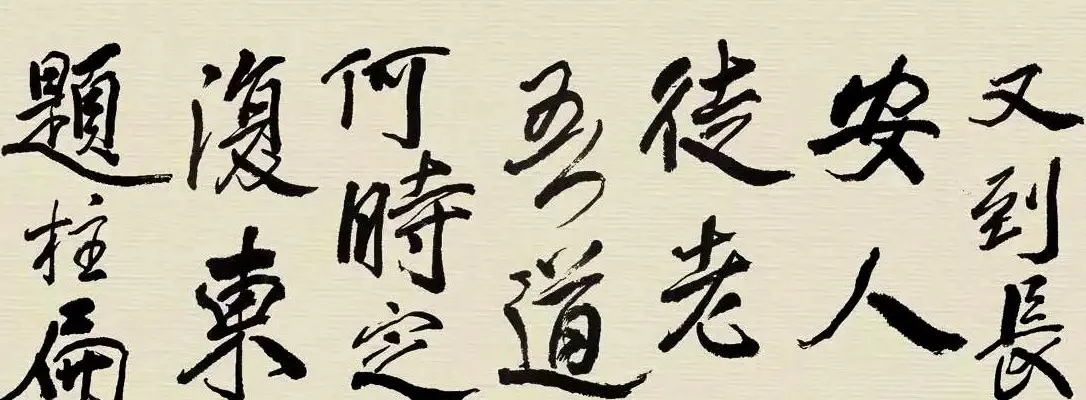 又到長
安人
徒老
吾道
何時定
復東
題柱扁